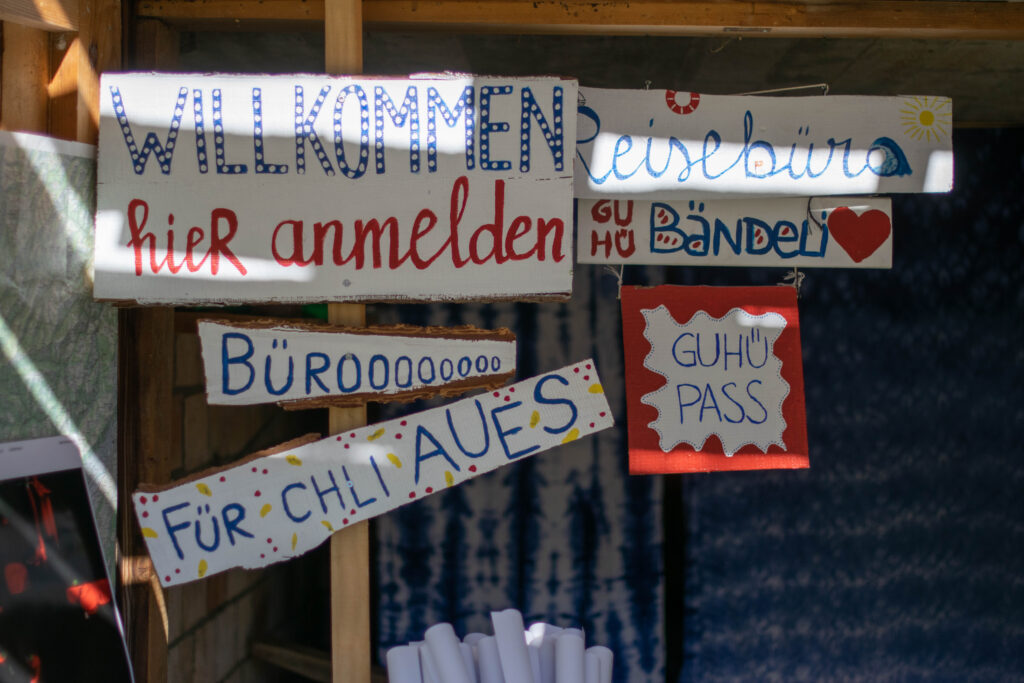 WILLKOMMEN
hieR anmelden
Reisebüro
GU
HÜ
BäNDELi
BÜROOOOOOOOO
FÜR CHLI AUES
GUHÜ
PASS